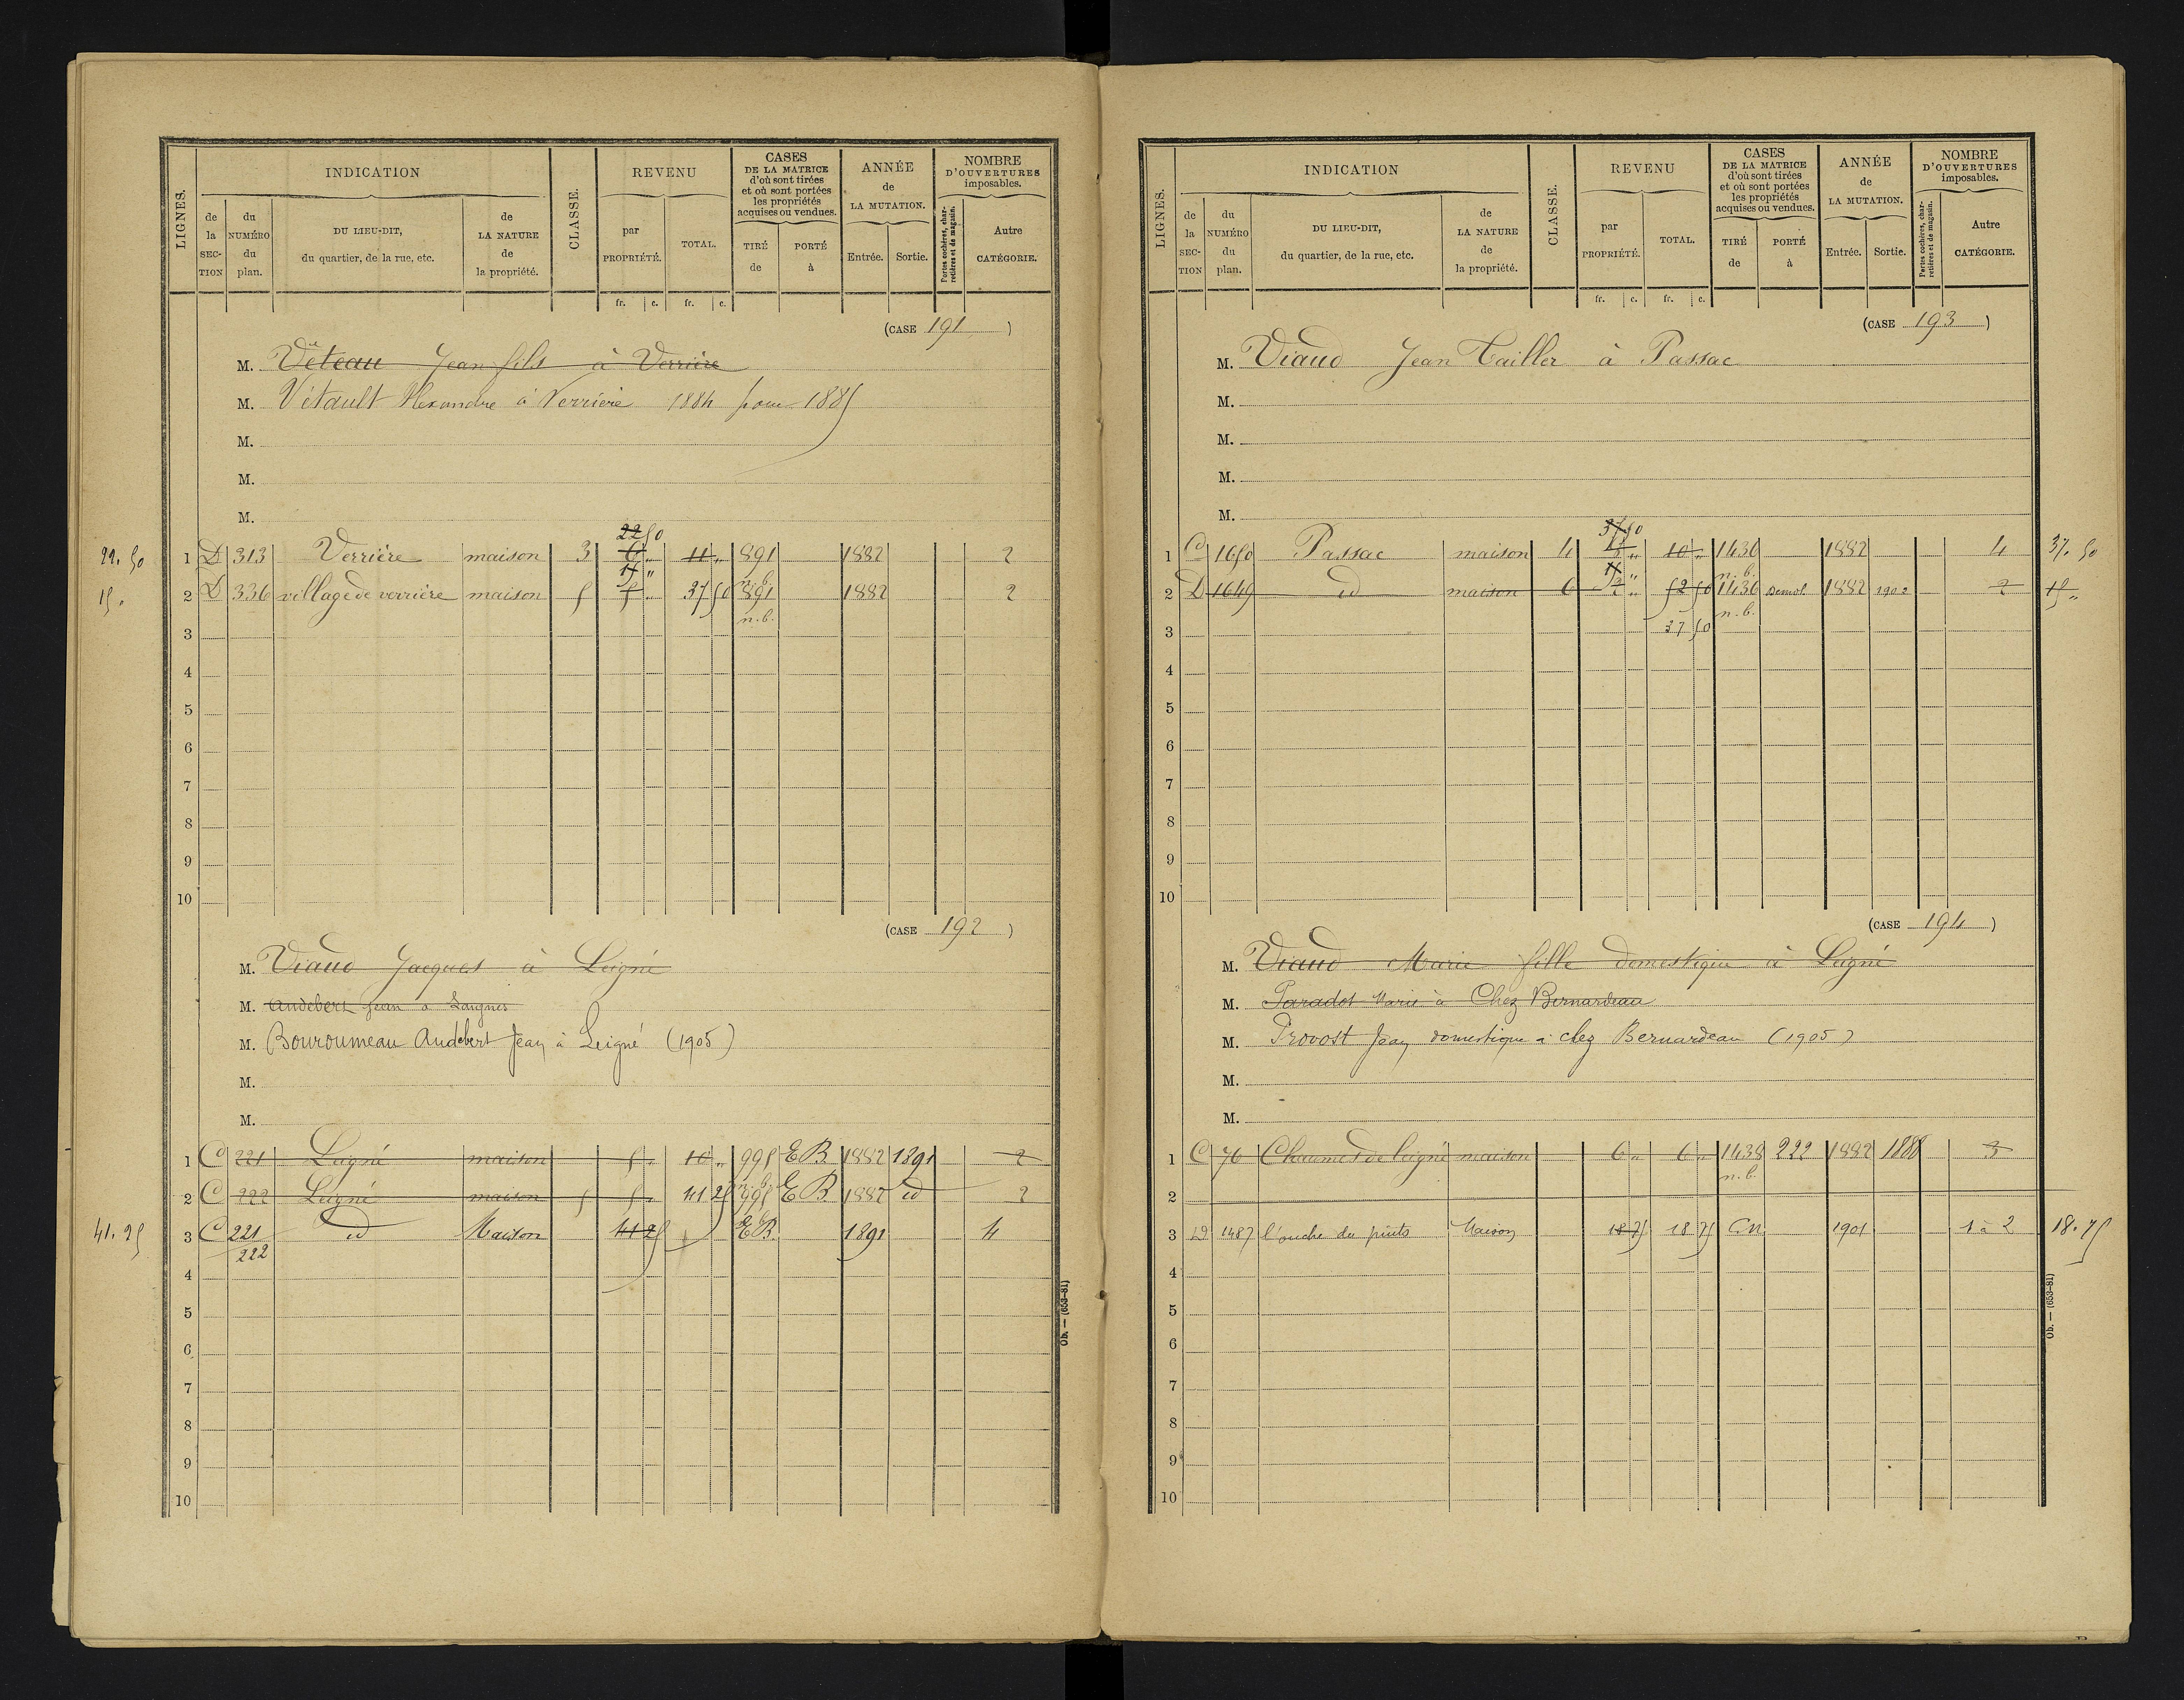 LIGNES.
INDICATION
de la SECTION
du NUMÉRO du plan.
DU LIEU-DIT, du quartier, de la rue, etc.
de LA NATURE de la propriété.
CLASSE.
REVENU
par PROPRIÉTÉ.
TOTAL.
fr. c. fr. c.
CASES DE LA MATRICE d'où sont tirées et où sont portées les propriétés acquises ou vendues.
TIRÉ de
PORTÉ à
ANNÉE de LA MUTATION.
Entrée. Sortie.
NOMBRE D'OUVERTURES imposables.
Portes cochères, charretières et de magasin.
Autre CATÉGORIE.
(CASE 191)
M. Véteau Jean fils à Verrière
M. Vétault Alexandre à Verrière 1884 pour 1885
M.
M.
M.
22 50
22. 50 1 D 313 Verrière maison 3 6 " 11 " 891 1882 2
15 " n. b.
15. 2 D 336 village de verrière maison 5 5 " 37 50 891 1882 2
n. b.
3
4
5
6
7
8
9
10
(CASE 192)
M. Viaud Jacques à Leigné
M. Audebert Jean à Laignes
M. Bouroumeau Audebert Jean à Leigné (1905)
M.
M.
1 C 221 Leigné maison 5 " 10 " 995 EB 1882 1891 2
n. b.
2 C 222 Leigné maison 5 5 " 41 25 995 EB 1882 id 2
41. 25 3 C 221 id Maison 41 25 EB. 1891 4
222
4
5
6
7
8
9
10
Ob. — (653-81)
LIGNES.
INDICATION
de la SECTION
du NUMÉRO du plan.
DU LIEU-DIT, du quartier, de la rue, etc.
de LA NATURE de la propriété.
CLASSE.
REVENU
par PROPRIÉTÉ.
TOTAL.
fr. c. fr. c.
CASES DE LA MATRICE d'où sont tirées et où sont portées les propriétés acquises ou vendues.
TIRÉ de
PORTÉ à
ANNÉE de LA MUTATION.
Entrée. Sortie.
NOMBRE D'OUVERTURES imposables.
Portes cochères, charretières et de magasin.
Autre CATÉGORIE.
(CASE 193)
M. Viaud Jean Tailler à Passac
M.
M.
M.
M.
37 50
1 D 1650 Passac maison 4 " 10 " 1436 1882 4 37. 50
15 " n. b.
2 D 1649 id maison 6 2 " 52 50 1436 Demol. 1882 1902 2 15 "
n. b.
3 37 50
4
5
6
7
8
9
10
(CASE 194)
M. Viaud Marie fille domestique à Leigné
M. Paradot Marie à Chez Bernardeau
M. Provost Jean domestique à chez Bernardeau (1905)
M.
M.
1 C 76 Chaumes de leigné maison 6 " 6 " 1438 222 1882 1888 3
n. b.
2
3 D 1487 l'ouche du puits Maison 18 75 18 75 C.N. 1901 1 à 2 18. 75
4
5
6
7
8
9
10
Ob. — (653-81)